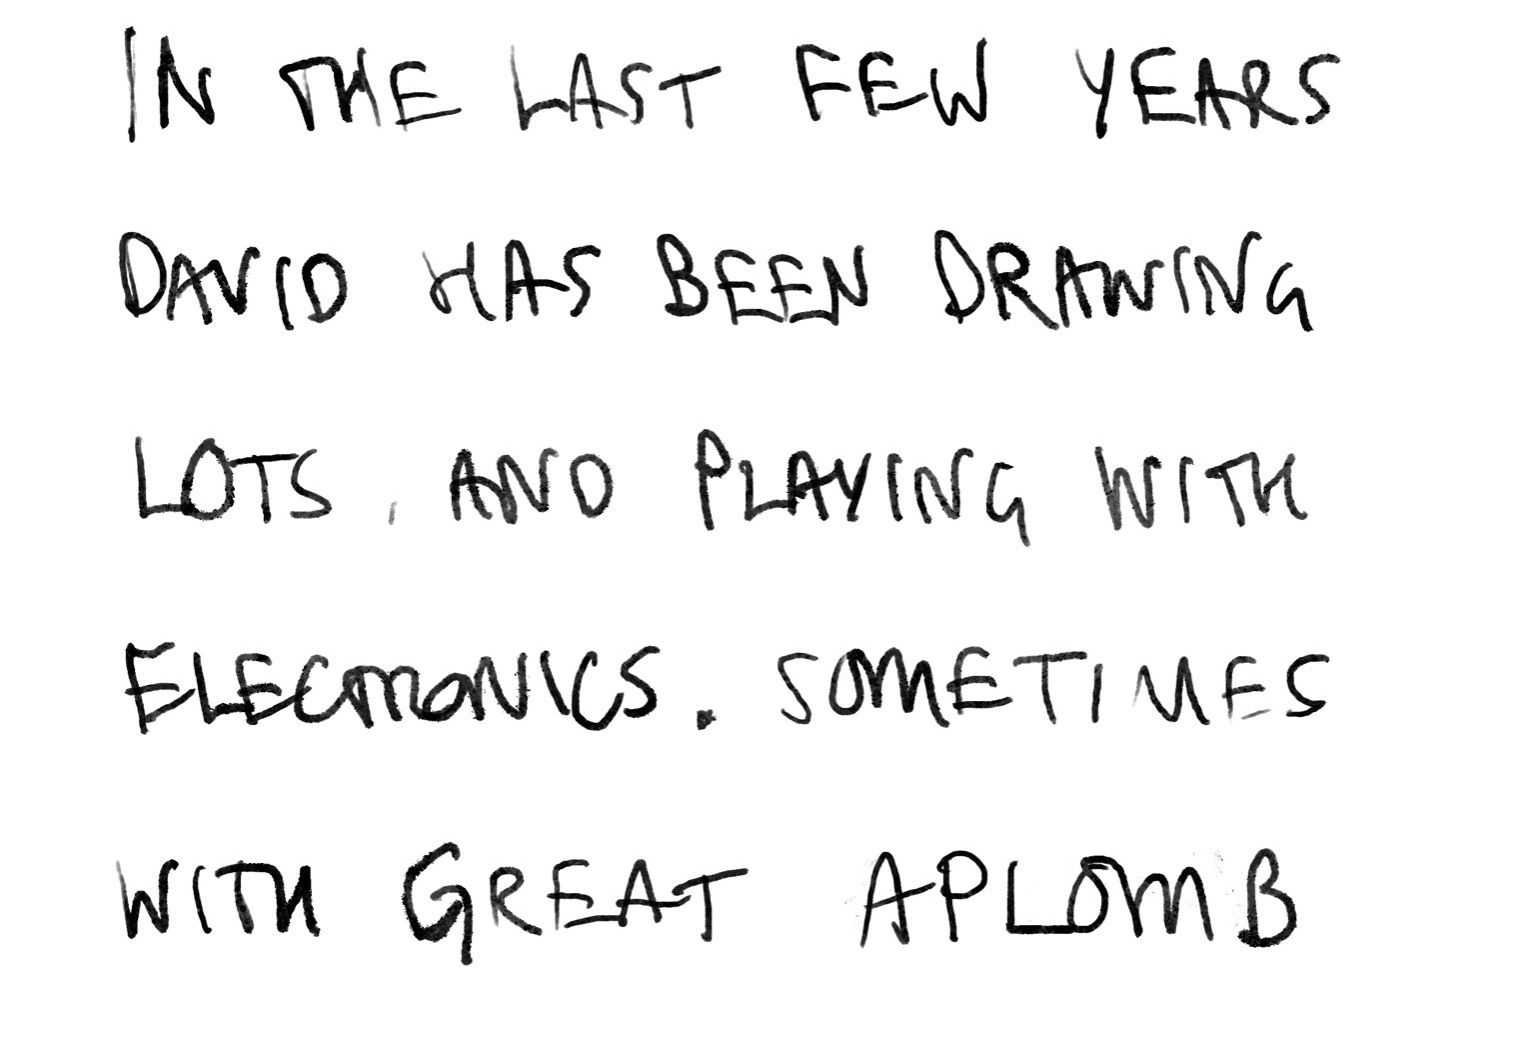 IN THE LAST FEW YEARS
DAVID HAS BEEN DRAWING
LOTS, AND PLAYING WITH
ELECTRONICS. SOMETIMES
WITH GREAT APLOMB